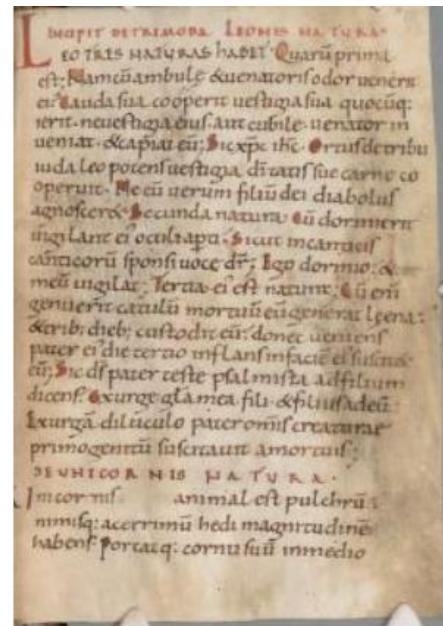 INCIPIT DE TRIMODA LEONIS NATURA
LEO TRES NATURAS habet. Quarū prima
est; Nam cū ambulę & uenatoris odor uenerit
ei; Cauda sua cooperit uestigia sua quocūq:
ierit. ne uestigia eius. aut cubile. uenator in
ueniat. & capiat eū; Sic xp̄c ih̄c. Ortus de tribu
iuda leo potens uestigia. dītatis suę carne co
operuit. Ne cū uerum filiū dei diabolus
agnoscer&; Secunda natura. Cū dormierit
uigilant ei oculi apti. Sicut in canticis
canticorū sponsi uoce dr̄; Ego dormio. &
meū uigilat; Tertia ei est natura; Cū enī
genuerit catulū mortuū eū generat leena:
& trib: dieb; custodit eū: donec ueniens
pater ei die tertio inflans in facię ei suscit&
eū; Sic ds̄ pater teste psalmista ad filium
dicens. Exurge gl̄a mea fili. & filius ad eū:
Exurgā diluculo pater om̄is creaturae
primogenitū suscitauit a mortuis;
DE UNICORNIS NATURA.
Unicornis animal est pulchrū:
nimisq: acerrimū hedi magnitudinē
habens. Portatq: cornu suū in medio